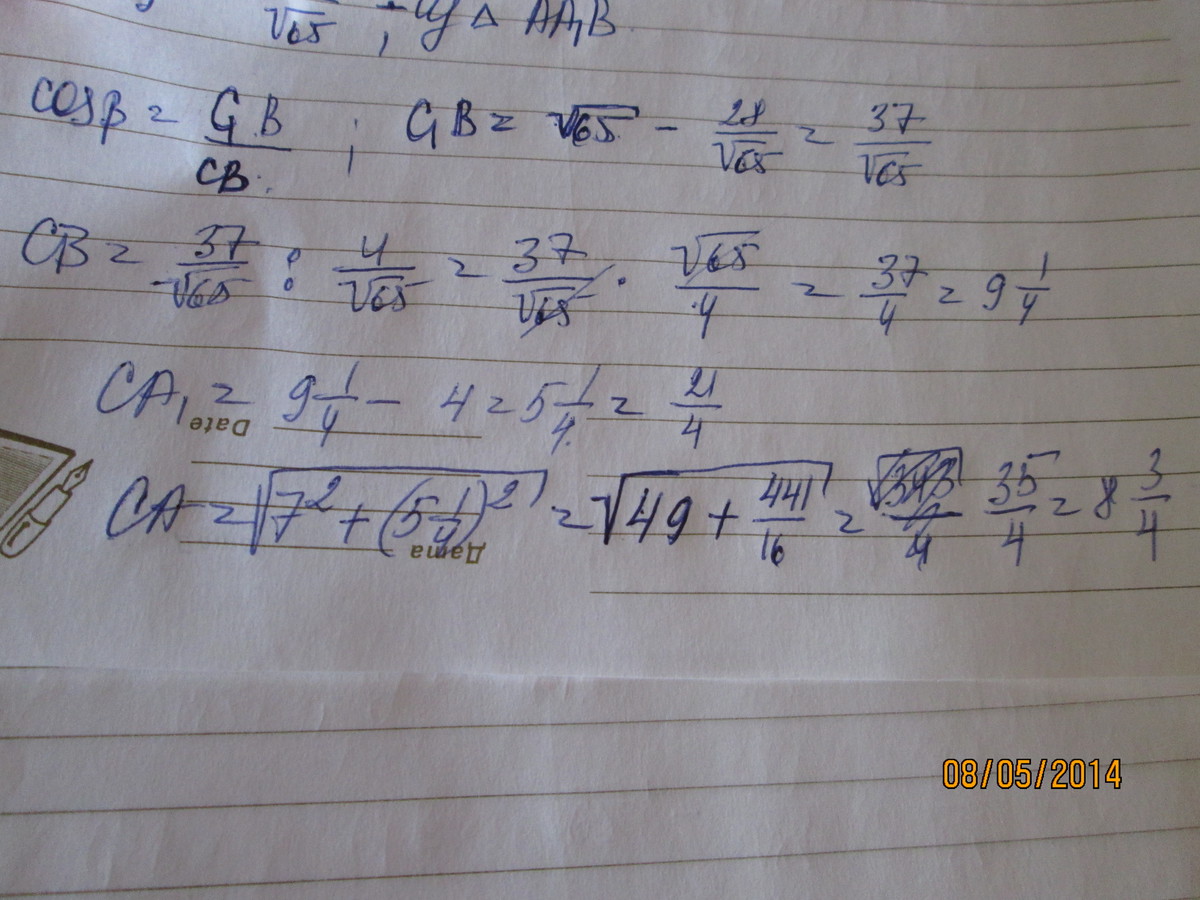 √65 ; из Δ AA₁B
cosβ = C₁B/CB ; C₁B = √65 - 28/√65 = 37/√65
CB = 37/√65 : 4/√65 = 37/√65 · √65/4 = 37/4 = 9 1/4
CA₁ = 9 1/4 - 4 = 5 1/4 = 21/4
Date
CA = √(7² + (5 1/4)²) = √(49 + 441/16) = 35/4 = 8 3/4
Дата
08/05/2014